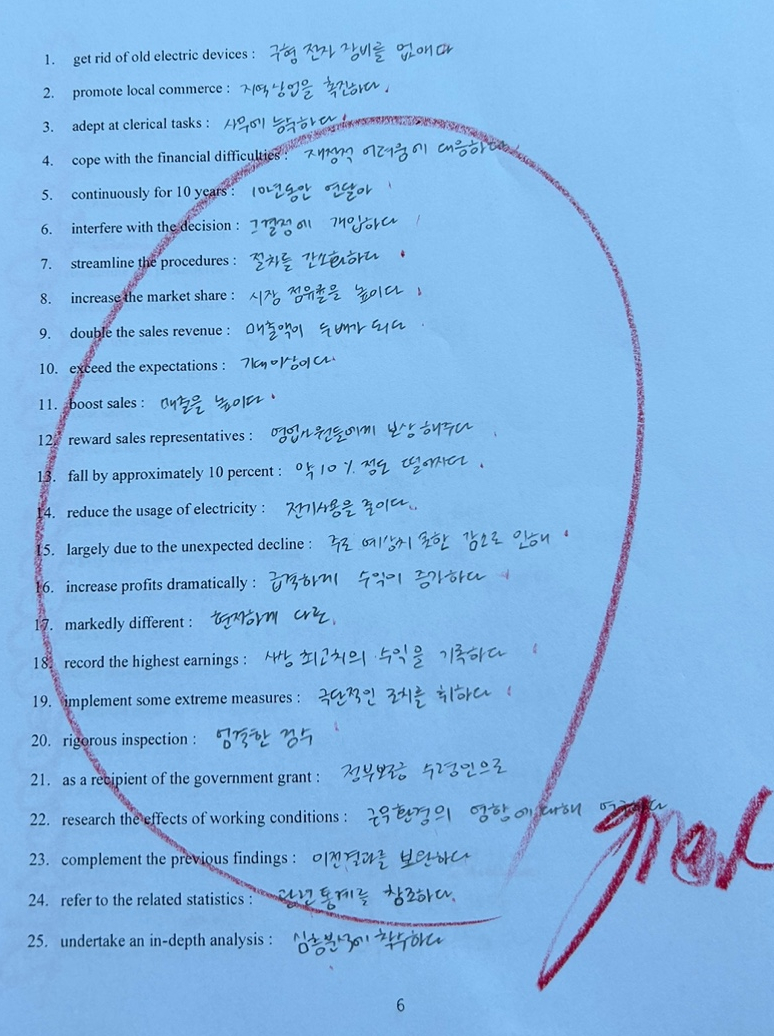 1. get rid of old electric devices : 구형 전자 장비를 없애다
2. promote local commerce : 지역상업을 촉진하다.
3. adept at clerical tasks : 사무에 능숙하다.
4. cope with the financial difficulties : 재정적 어려움에 대응하다.
5. continuously for 10 years : 10년동안 연달아
6. interfere with the decision : 그결정에 개입하다
7. streamline the procedures : 절차를 간소화하다
8. increase the market share : 시장 점유율을 높이다
9. double the sales revenue : 매출액이 두배가 되다
10. exceed the expectations : 기대이상이다.
11. boost sales : 매출을 높이다
12. reward sales representatives : 영업사원들에게 보상해주다
13. fall by approximately 10 percent : 약 10% 정도 떨어지다.
14. reduce the usage of electricity : 전기사용을 줄이다.
15. largely due to the unexpected decline : 주로 예상치 못한 감소로 인해
16. increase profits dramatically : 급격하게 수익이 증가하다
17. markedly different : 현저하게 다른.
18. record the highest earnings : 최고치의 수익을 기록하다
19. implement some extreme measures : 극단적인 조치를 취하다
20. rigorous inspection : 엄격한 검수
21. as a recipient of the government grant : 정부보조금 수령인으로
22. research the effects of working conditions : 근무환경의 영향에 대해
23. complement the previous findings : 이전결과를 보완하다
24. refer to the related statistics : 관련통계를 참조하다.
25. undertake an in-depth analysis : 심층분석에 착수하다
6